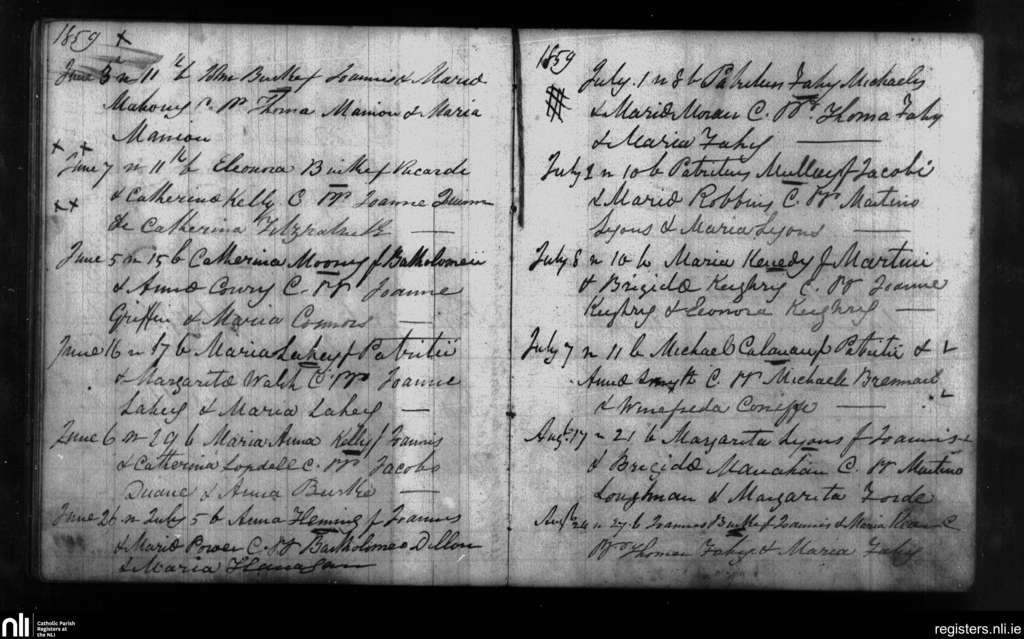 1859
June 3 n 11th b John Burke f Joannis & Mariæ
Mahony C. PP Thoma Manion & Maria
Manion
June 7 n 11th b Eleonora Burke f Ricardi
& Catherinæ Kelly C PP Joanne
& Catherina Fitzpatrick
June 5 n 15 b Catherina Moony f Bartholomei
& Annæ Cowry C. PP Joanne
Griffin & Maria Connors
June 16 n 17 b Maria Lahey f Patritii
& Margaritæ Walsh C. PP Joanne
Lahey & Maria Lahey
June 6 n 29 b Maria Anna Kelly f Joannis
& Catherina Lopdell C. PP Jacobo
Duane & Anna Burke
June 26 n July 5 b Anna Fleming f Joannis
& Mariæ Power C. PP Bartholomeo Dillon
& Maria Flanagan
1859
July 1 n 8 b Patritius Fahy Michaelis
& Mariæ Moran C. PP Thoma Fahy
& Maria Fahy
July n 10 b Patritius f Jacobi
& Mariæ Robbins C. PP Martino
Lyons & Maria Lyons
July 8 n 10 b Maria Kenedy f Martini
& Brigidæ Keighrey C. PP Joanne
Keighrey & Eleonora Keighrey
July 7 n 11 b Michael Calanan f Patritii &
Annæ Smyth C. PP Michaele Brennan
& Winefreda
Augt 17 n 21 b Margarita Lyons f Joannis
& Brigidæ Manahan C. PP Martino
Loughnan & Margarita Forde
Augt 24 n 27 b Joannes Burke f Joannis & Maria C
PP Thoma Fahy & Maria Fahy
nli
Catholic Parish
Registers at
the NLI
registers.nli.ie